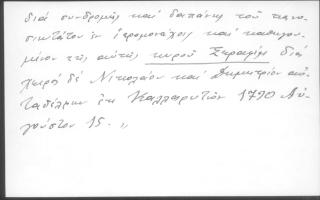 διά συνδρομῆς καί δαπάνης τοῦ πανο-
σιωτάτου ἐν ἱερομονάχοις καί καθηγου-
μένου τῆς αὐτῆς κυροῦ Σεραφίμ διά
χειρός δέ Νικολάου καί Δημητρίου αὐ-
ταδέλφων ἐκ Καλλαρυτῶν 1790 Αὐ-
γούστου 15. "